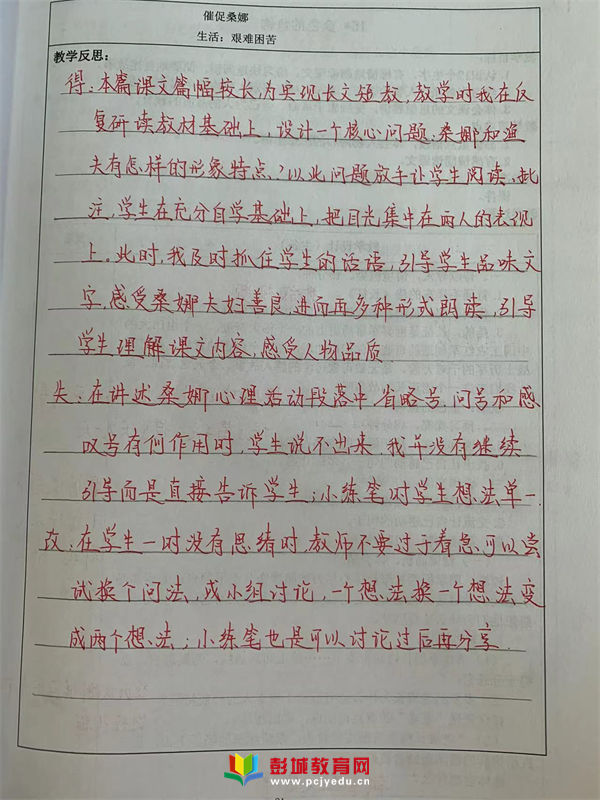 催促桑娜
生活：艰难困苦
教学反思：
得：本篇课文篇幅较长，为实现长文短教，教学时我在反
复研读教材基础上，设计一个核心问题：桑娜和渔
夫有怎样的形象特点？以此问题放手让学生阅读、批
注，学生在充分自学基础上，把目光集中在两人的表现
上。此时，我及时抓住学生的话语，引导学生品味文
字，感受桑娜夫妇善良，进而再多种形式朗读，引导
学生理解课文内容，感受人物品质
失：在讲述桑娜心理活动段落中，省略号、问号和感
叹号有何作用时，学生说不出来，我并没有继续
引导而是直接告诉学生；小练笔时学生想法单一.
改：在学生一时没有思绪时，教师不要过于着急，可以尝
试换个问法，或小组讨论，一个想法换一个想法变
成两个想法；小练笔也是可以讨论过后再分享.
彭城教育网
www.pcjyedu.com